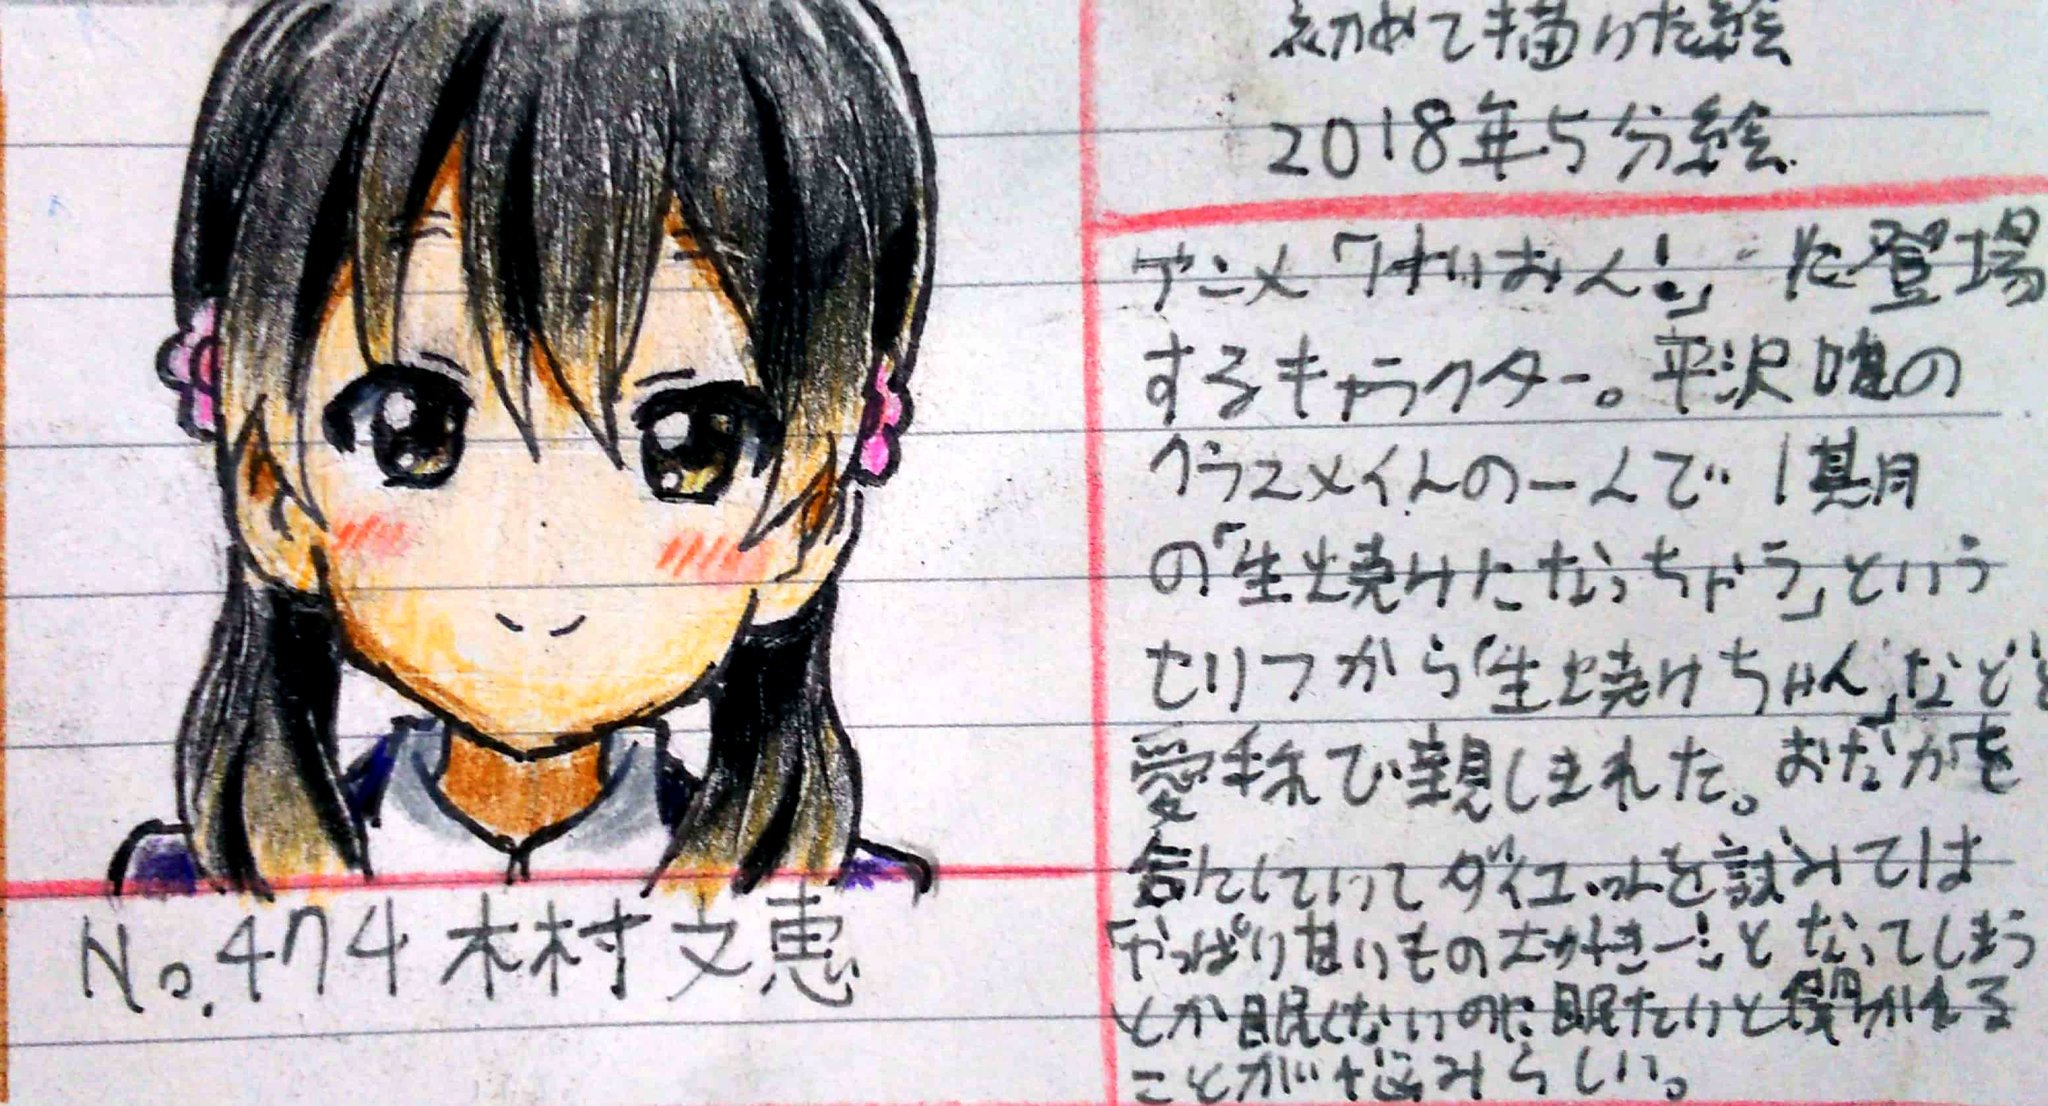 初めて描けた絵
2018年5分絵
アニメ「けいおん!」に登場
するキャラクター。平沢唯の
クラスメイトの一人で1期
の「生焼けになっちゃう」という
セリフから「生焼けちゃん」などと
愛称で親しまれた。おなかを
気にしていてダイエットを試みては
「やっぱり甘いもの大好きー!」となってしまう
とか眠くないのに眠たいと聞かれる
ことが悩みらしい。
No.474 木村文恵